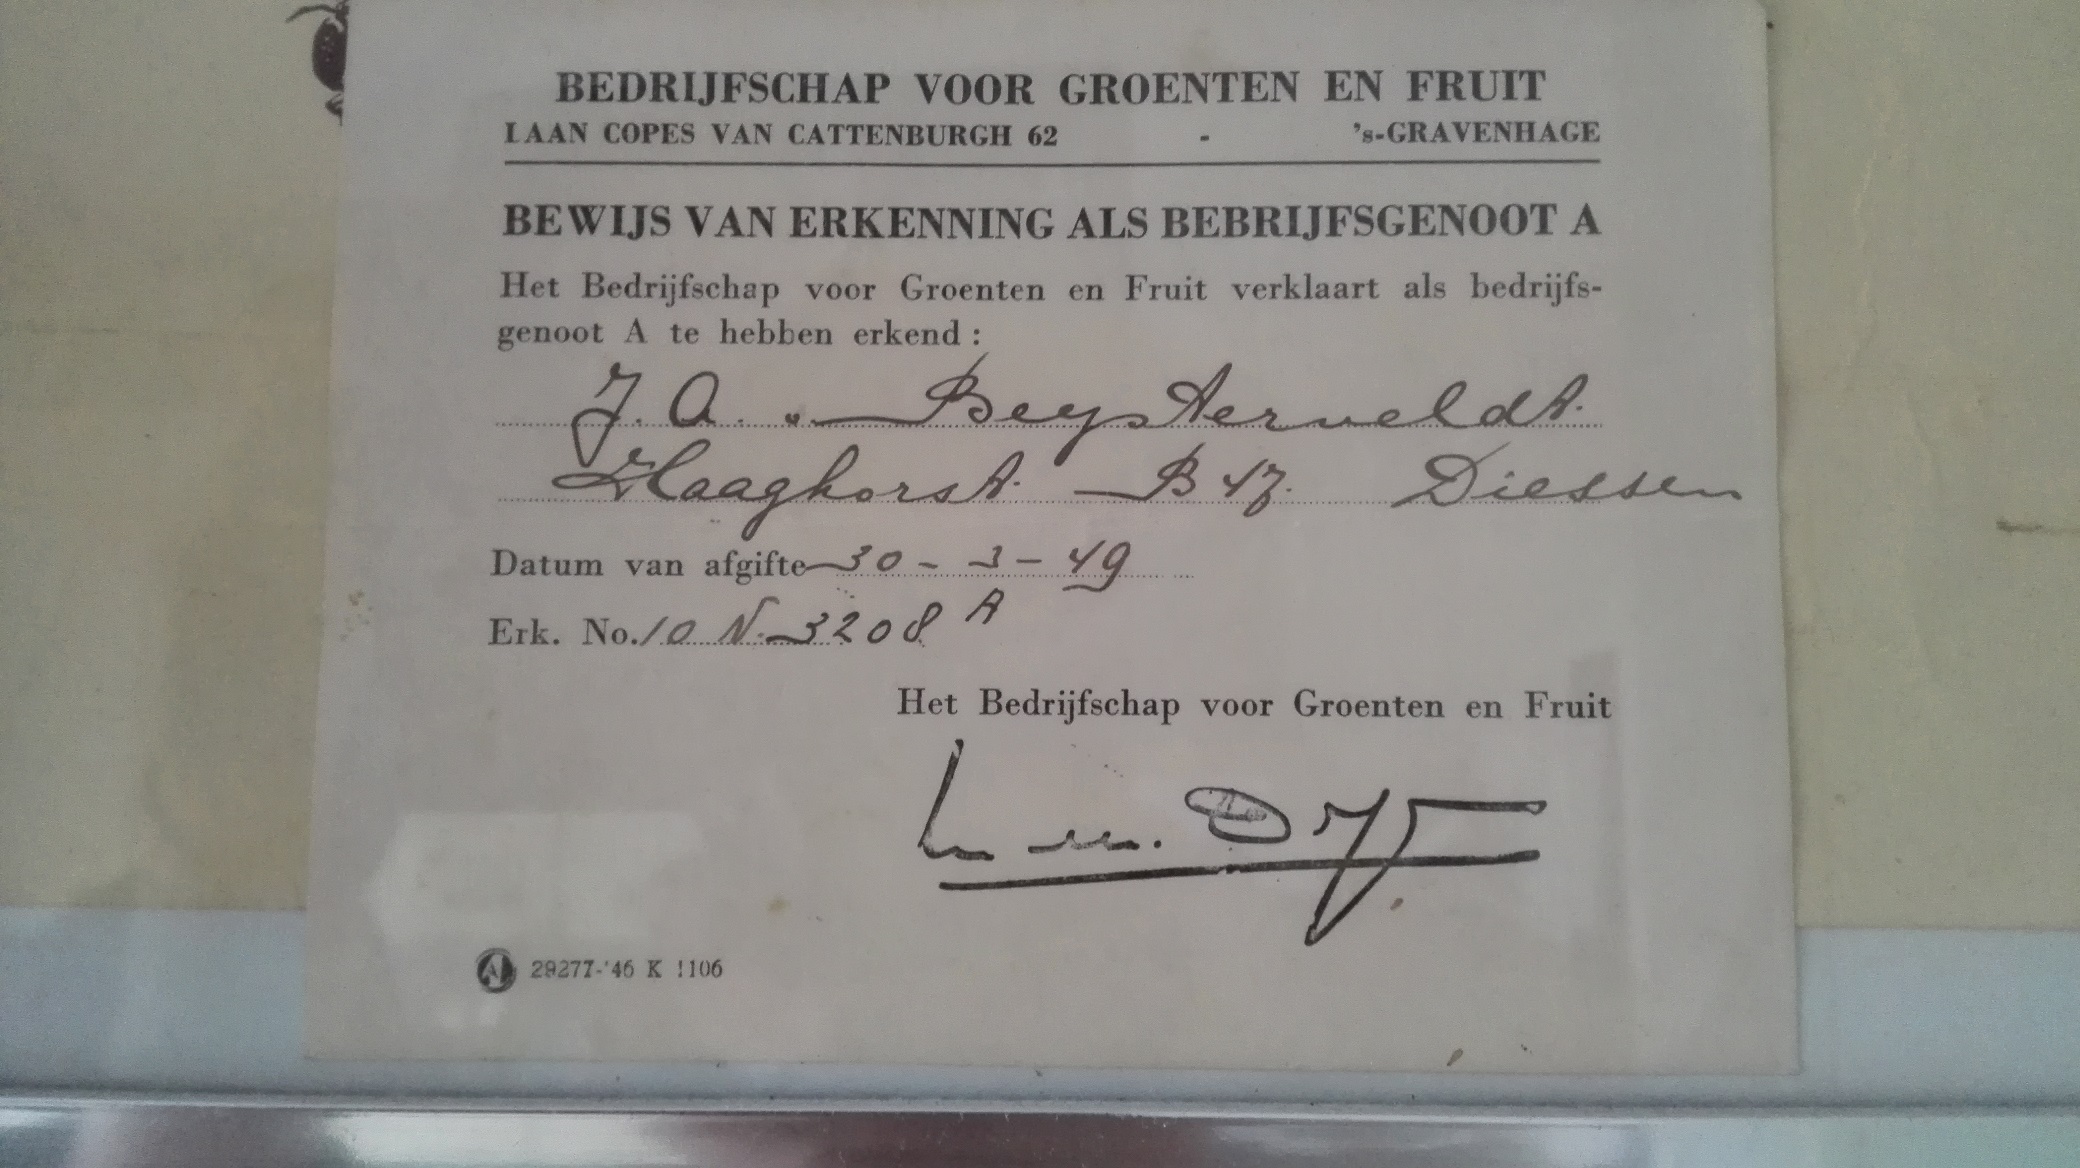 BEDRIJFSCHAP VOOR GROENTEN EN FRUIT
LAAN COPES VAN CATTENBURGH 62 - 's-GRAVENHAGE
BEWIJS VAN ERKENNING ALS BEBRIJFSGENOOT A
Het Bedrijfschap voor Groenten en Fruit verklaart als bedrijfs-
genoot A te hebben erkend :
J. A. v. Beysterveldt.
Haaghorst. B 47. Diessen
Datum van afgifte 30 - 3 - 49
Erk. No. 10 N. 3208 A
Het Bedrijfschap voor Groenten en Fruit
A 29277-'46 K 1106